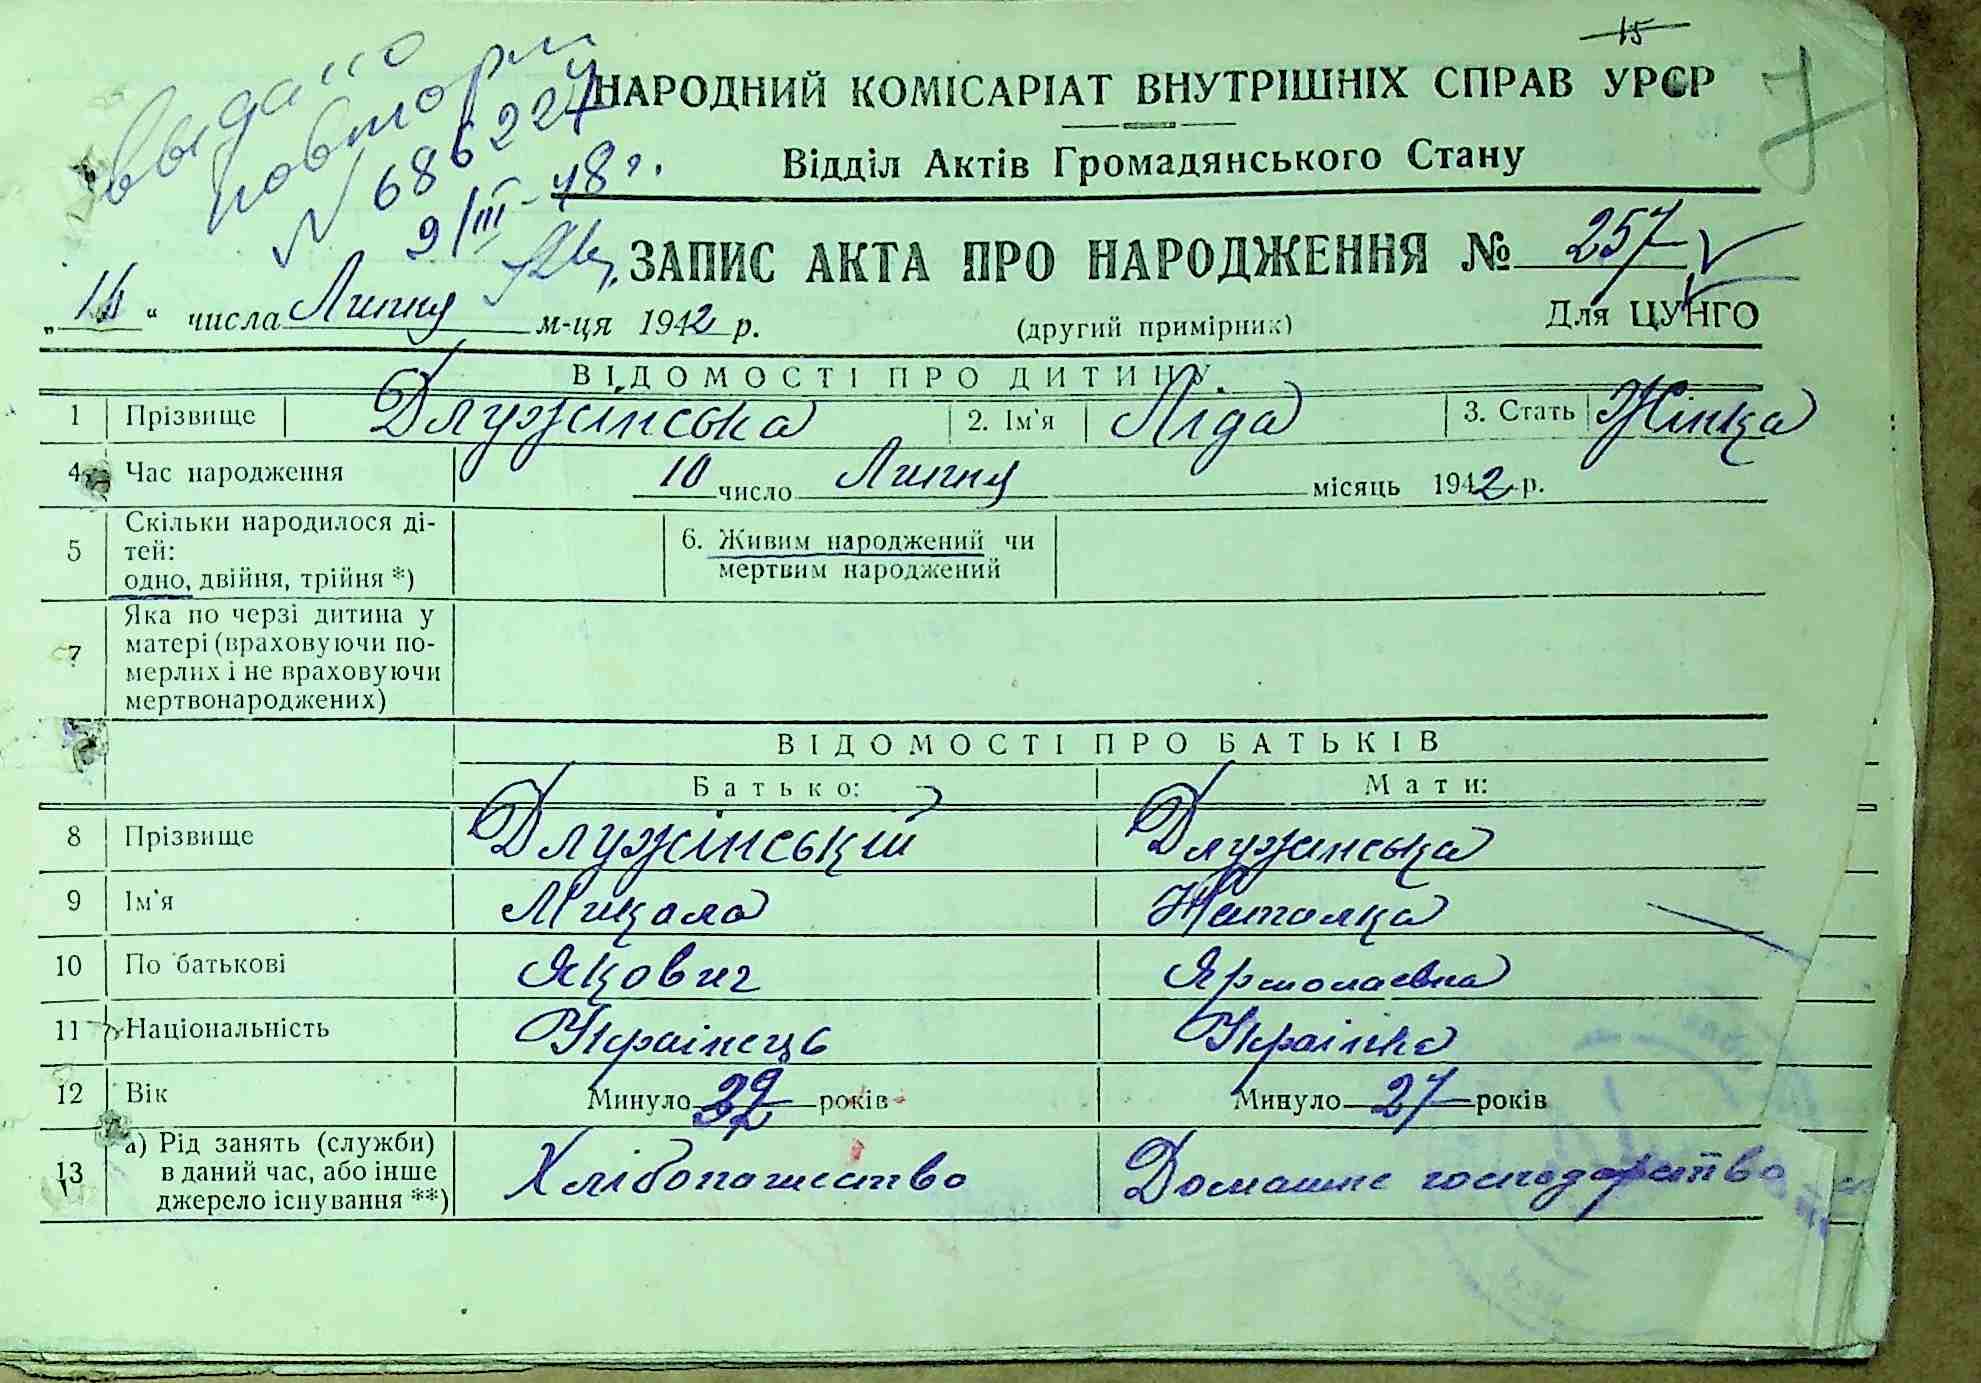 15
видано
повторн
N 686224
9/III-48 г.
НАРОДНИЙ КОМІСАРІАТ ВНУТРІШНІХ СПРАВ УРСР
Відділ Актів Громадянського Стану
ЗАПИС АКТА ПРО НАРОДЖЕННЯ № 257
" числа Липня м-ця 1942 р. (другий примірник) Для ЦУНГО
ВІДОМОСТІ ПРО ДИТИНУ
1 Прізвище Длужінська 2. Ім'я Ліда 3. Стать Жінка
4 Час народження 10 число Липня місяць 1942 р.
5 Скільки народилося ді-
тей:
одно, двійня, трійня *)
6. Живим народжений чи
мертвим народжений
7 Яка по черзі дитина у
матері (враховуючи по-
мерлих і не враховуючи
мертвонароджених)
ВІДОМОСТІ ПРО БАТЬКІВ
Батько: Мати:
8 Прізвище Длужінський Длужінська
9 Ім'я Микола Наталка
10 По батькові Якович Ярмолаевна
11 Національність Українець Українка
12 Вік Минуло років Минуло 27 років
13 а) Рід занять (служби)
в даний час, або інше
джерело існування **)
Хлібопашество Домашне господарство